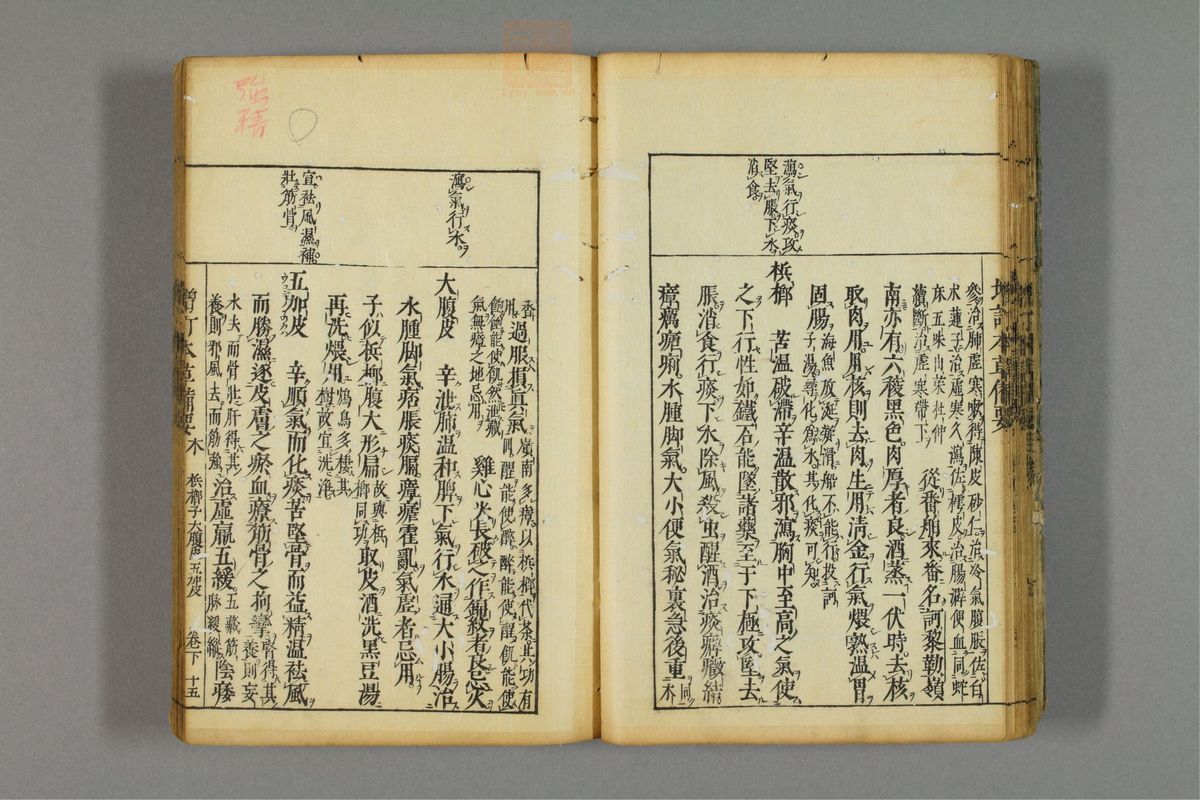 瀉氣行痰攻
堅去脹下水
消食
參治肺虛寒嗽得陳皮砂仁治冷氣腹脹佐白
朮蓮子治虛寒久瀉佐樗皮治腸澼便血同蛇
牀五味山茱杜仲
續斷治虛寒帶下 從番舶來番名訶黎勒嶺
南亦有六稜黑色肉厚者良酒蒸一伏時去核
取肉用用核則去肉生用清金行氣煨熟溫胃
固腸 海魚放涎凝滑船不能行投訶
子湯尋化為水其化痰可知
檳榔 苦溫破滯辛溫散邪瀉胸中至高之氣使
之下行性如鐵石能墜諸藥至于下極攻堅去
脹消食行痰下水除風殺虫醒酒治痰癖癥結
瘴癘瘧痢水腫脚氣大小便氣秘裏急後重 同木
瀉氣行水
宣祛風濕補
壯筋骨
香
用 過服損眞氣 嶺南多瘴以檳榔代茶其功有
四醒能使醉醉能使醒飢能使
飽飽能使飢然瀉臟
氣無瘴之地忌用 雞心尖長破之作錦紋者良忌火
大腹皮 辛泄肺溫和脾下氣行水通大小腸治
水腫脚氣痞脹痰膈瘴瘧霍亂氣虛者忌用
子似檳榔腹大形扁 故與檳
榔同功 取皮酒洗黑豆湯
再洗煨用 鴆鳥多棲其
樹故宜洗淨
五加皮 辛順氣而化痰苦堅骨而益精溫祛風
而勝濕逐皮膚之瘀血療筋骨之拘攣 腎得其
養則妄
水去而骨壯肝得其
養則邪風去而筋強 治虛羸五緩 五藏筋
脉緩縱 陰痿
增訂本草備要 木 檳榔子大腹皮五加皮 卷下 十五